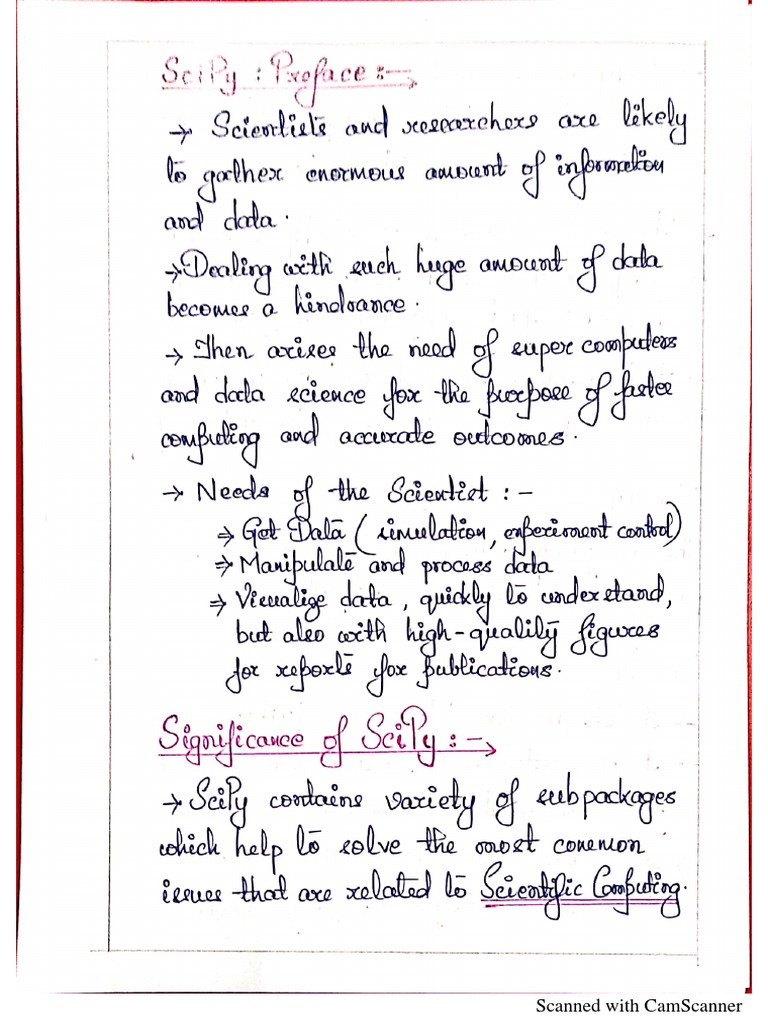 SciPy : Preface :-
→ Scientists and researchers are likely
to gather enormous amount of information
and data.
→ Dealing with such huge amount of data
becomes a hindrance.
→ Then arises the need of super computers
and data science for the purpose of faster
computing and accurate outcomes.
→ Needs of the Scientist : -
⇒ Get Data (simulation, experiment control)
⇒ Manipulate and process data
⇒ Visualize data, quickly to understand,
but also with high-quality figures
for reports for publications.
Significance of SciPy : -
→ SciPy contains variety of subpackages
which help to solve the most common
issues that are related to Scientific Computing.
Scanned with CamScanner